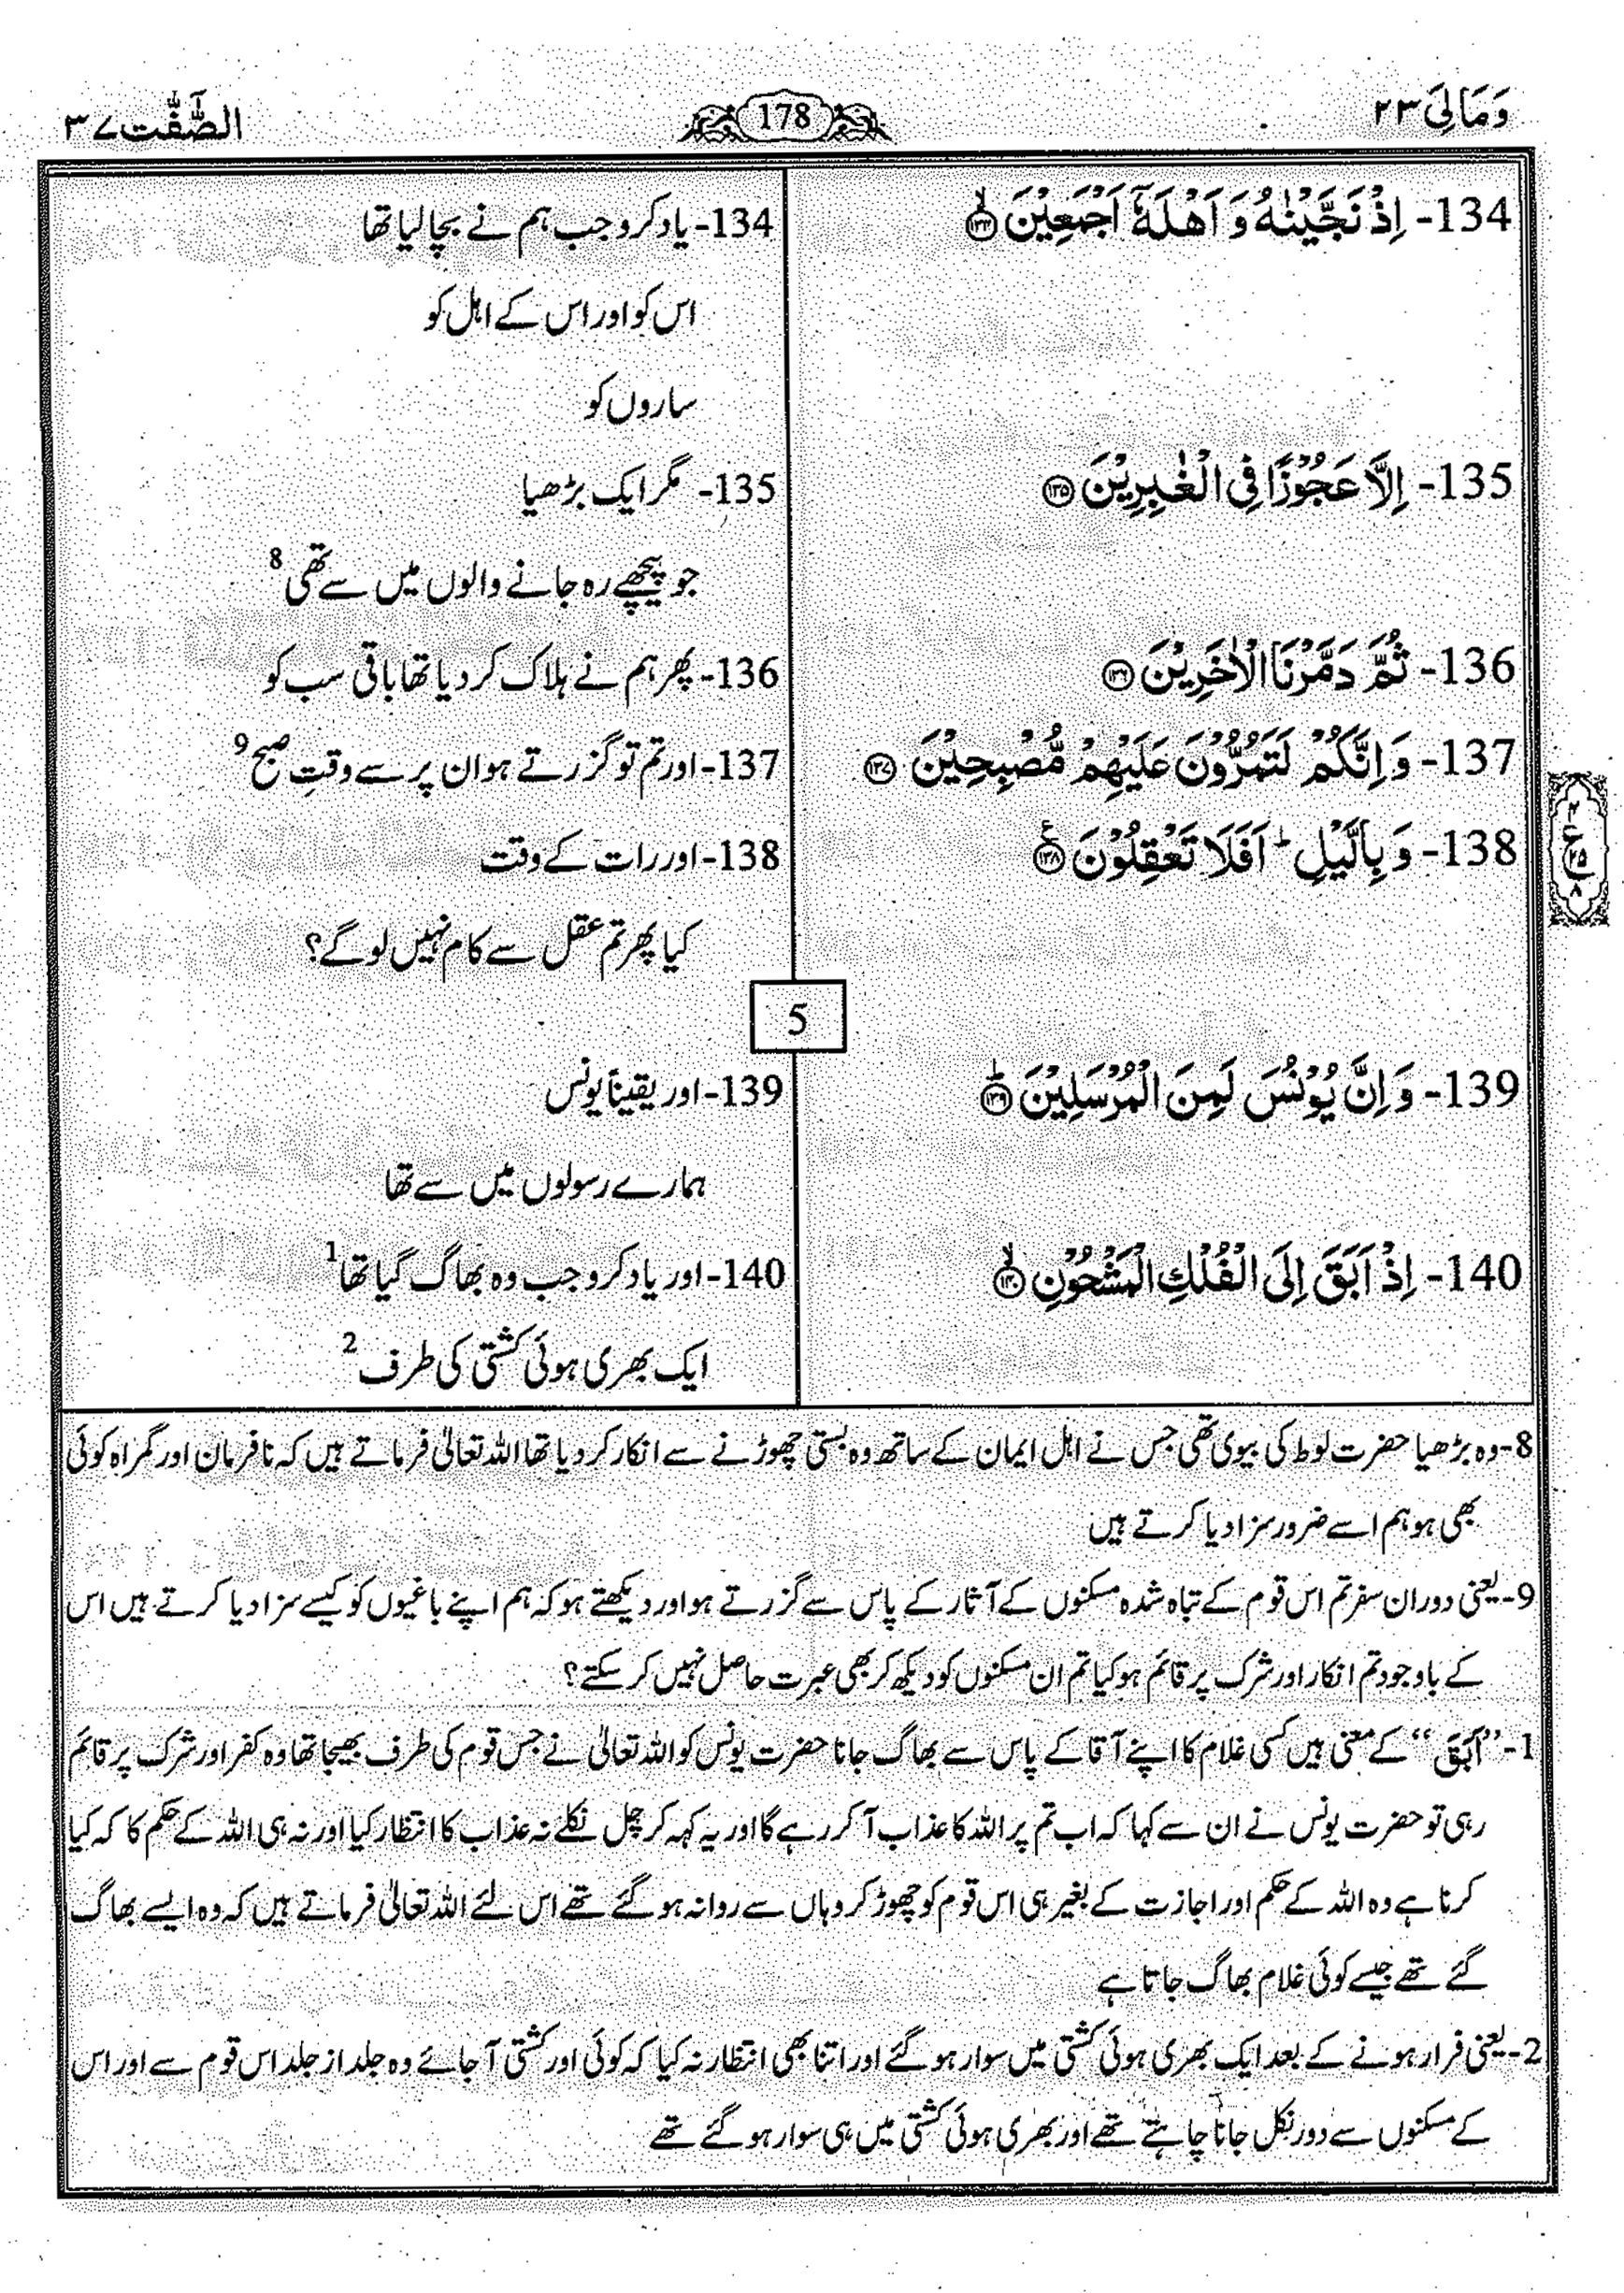 وَمَالِیَ ۲۳
178
الصّٰٓفّٰت ۳۷
134- اِذْ نَجَّیْنٰهُ وَ اَهْلَهٗۤ اَجْمَعِیْنَ ۙ﴿۱۳۴﴾
134- یاد کرو جب ہم نے بچا لیا تھا
اس کو اور اس کے اہل کو
ساروں کو
135- اِلَّا عَجُوْزًا فِی الْغٰبِرِیْنَ ﴿۱۳۵﴾
135- مگر ایک بڑھیا
جو پیچھے رہ جانے والوں میں سے تھی 8
136- ثُمَّ دَمَّرْنَا الْاٰخَرِیْنَ ﴿۱۳۶﴾
136- پھر ہم نے ہلاک کر دیا تھا باقی سب کو
137- وَ اِنَّكُمْ لَتَمُرُّوْنَ عَلَیْهِمْ مُّصْبِحِیْنَ ﴿۱۳۷﴾
137- اور تم تو گزرتے ہو ان پر سے وقتِ صبح 9
138- وَ بِالَّیْلِ ؕ اَفَلَا تَعْقِلُوْنَ ﴿۱۳۸﴾ ع
138- اور رات کے وقت
کیا پھر تم عقل سے کام نہیں لو گے؟
۲
ع
۲۵
۸
5
139- وَ اِنَّ یُوْنُسَ لَمِنَ الْمُرْسَلِیْنَ ؕ﴿۱۳۹﴾
139- اور یقیناً یونس
ہمارے رسولوں میں سے تھا
140- اِذْ اَبَقَ اِلَی الْفُلْكِ الْمَشْحُوْنِ ۙ﴿۱۴۰﴾
140- اور یاد کرو جب وہ بھاگ گیا تھا 1
ایک بھری ہوئی کشتی کی طرف 2
8- وہ بڑھیا حضرت لوط کی بیوی تھی جس نے اہل ایمان کے ساتھ وہ بستی چھوڑنے سے انکار کر دیا تھا اللہ تعالیٰ فرماتے ہیں کہ نافرمان اور گمراہ کوئی
بھی ہو ہم اسے ضرور سزا دیا کرتے ہیں
9- یعنی دوران سفر تم اس قوم کے تباہ شدہ مسکنوں کے آثار کے پاس سے گزرتے ہو اور دیکھتے ہو کہ ہم اپنے باغیوں کو کیسے سزا دیا کرتے ہیں اس
کے باوجود تم انکار اور شرک پر قائم ہو کیا تم ان مسکنوں کو دیکھ کر بھی عبرت حاصل نہیں کر سکتے؟
1- ”اَبَقَ“ کے معنی ہیں کسی غلام کا اپنے آقا کے پاس سے بھاگ جانا حضرت یونس کو اللہ تعالیٰ نے جس قوم کی طرف بھیجا تھا وہ کفر اور شرک پر قائم
رہی تو حضرت یونس نے ان سے کہا کہ اب تم پر اللہ کا عذاب آ کر رہے گا اور یہ کہہ کر چل نکلے نہ عذاب کا انتظار کیا اور نہ ہی اللہ کے حکم کا کہ کیا
کرنا ہے وہ اللہ کے حکم اور اجازت کے بغیر ہی اس قوم کو چھوڑ کر وہاں سے روانہ ہو گئے تھے اس لئے اللہ تعالیٰ فرماتے ہیں کہ وہ ایسے بھاگ
گئے تھے جیسے کوئی غلام بھاگ جاتا ہے
2- یعنی فرار ہونے کے بعد ایک بھری ہوئی کشتی میں سوار ہو گئے اور اتنا بھی انتظار نہ کیا کہ کوئی اور کشتی آ جائے وہ جلد از جلد اس قوم سے اور اس
کے مسکنوں سے دور نکل جانا چاہتے تھے اور بھری ہوئی کشتی میں ہی سوار ہو گئے تھے